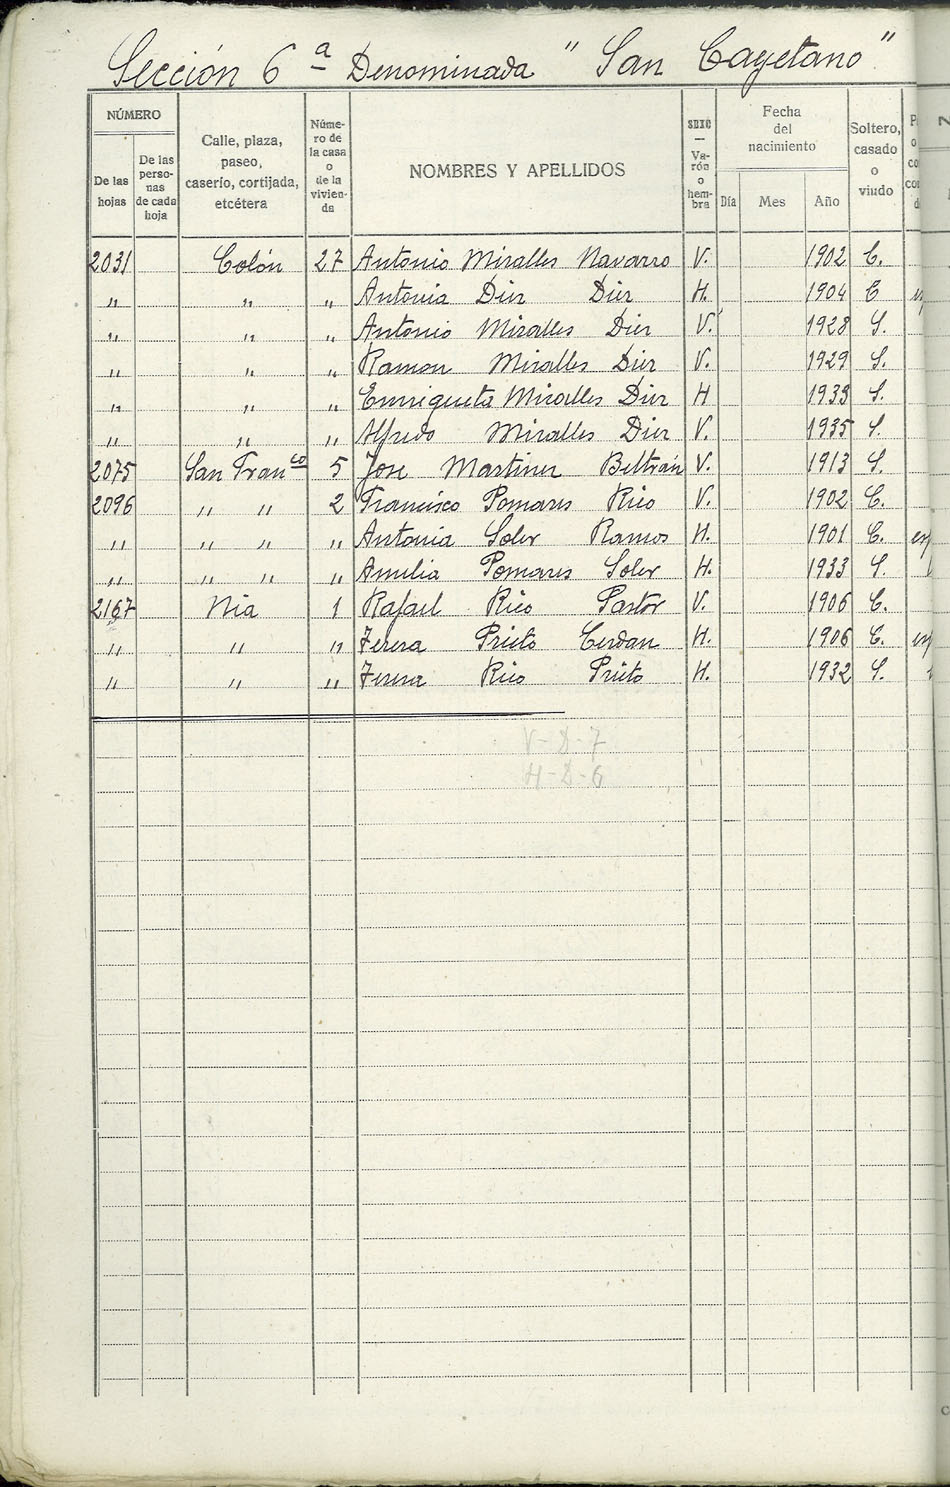 Sección 6ª Denominada "San Cayetano"
NÚMERO
De las hojas
De las perso- nas de cada hoja
Calle, plaza, paseo, caserío, cortijada, etcétera
Núme- ro de la casa o de la vivien- da
NOMBRES Y APELLIDOS
SEXO — Va- rón o hem- bra
Fecha del nacimiento
Día Mes Año
Soltero, casado o viudo
2031 Colón 27 Antonio Miralles Navarro V. 1902 C.
" " " Antonia Diez Diez H. 1904 C
" " " Antonio Miralles Diez V. 1928 S.
" " " Ramon Miralles Diez V. 1929 S.
" " " Enriqueta Miralles Diez H 1933 S.
" " " Alfredo Miralles Diez V. 1935 S.
2075 San Franco 5 Jose Martinez Beltrán V. 1913 S.
2096 " " 2 Francisco Pomares Rico V. 1902 C.
" " " " Antonia Soler Ramos H. 1901 C.
" " " " Amelia Pomares Soler H. 1933 S.
2167 Nia 1 Rafael Rico Pastor V. 1906 C.
" " " Teresa Prieto Cerdan H. 1906 C.
" " " Teresa Rico Prieto H. 1932 S.
V-D-7
H-D-6